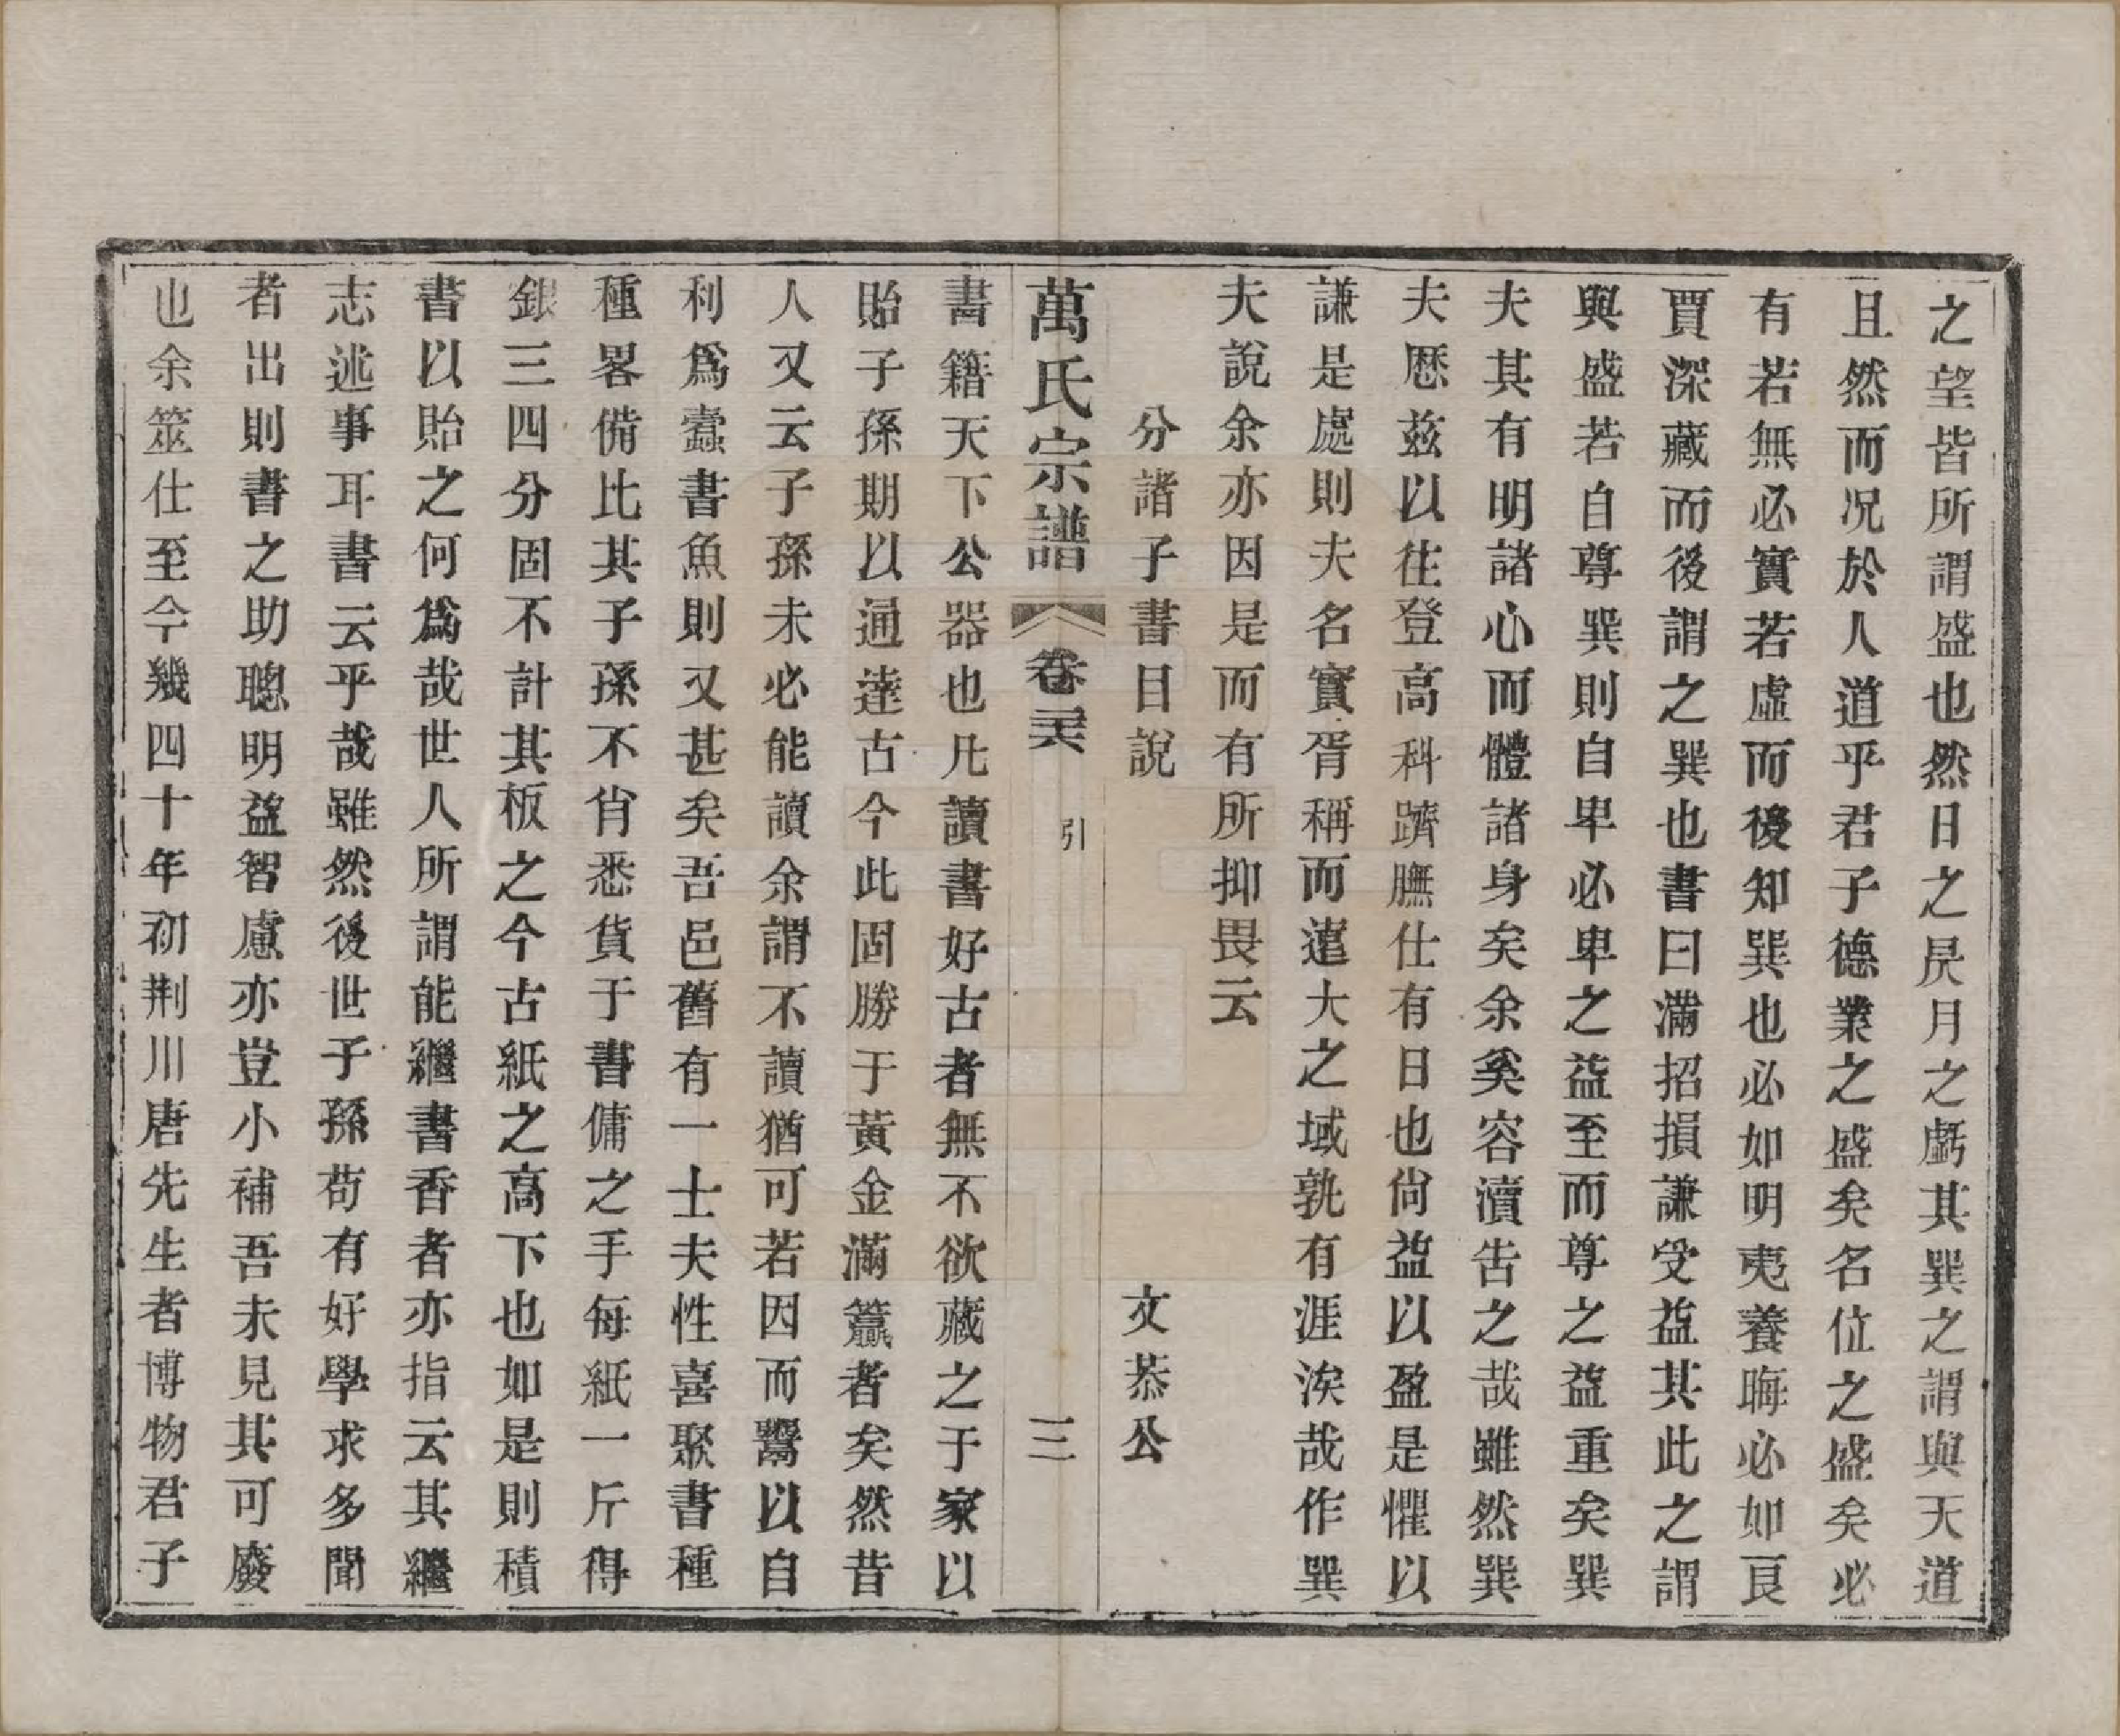 之望皆所謂盛也然日之昃月之虧其巽之謂與天道
且然而况於人道乎君子德業之盛矣名位之盛矣必
有若無必實若虛而後知巽也必如明夷養晦必如良
賈深藏而後謂之巽也書曰滿招損謙受益其此之謂
與盛若自尊巽則自卑必卑之益至而尊之益重矣巽
夫其有明諸心而體諸身矣余奚容瀆告之哉雖然巽
夫歴兹以往登高科躋膴仕有日也尙益以盈是懼以
謙是處則夫名實胥稱而遠大之域孰有涯涘哉作巽
夫說余亦因是而有所抑畏云
分諸子書目說　文恭公
萬氏宗譜　卷　引　三
書籍天下公器也凡讀書好古者無不欲藏之于家以
貽子孫期以通達古今此固勝于黃金滿籯者矣然昔
人又云子孫未必能讀余謂不讀猶可若因而鬻以自
利爲蠹書魚則又甚矣吾邑舊有一士夫性喜聚書種
種畧備比其子孫不肖悉貨于書傭之手每紙一斤得
銀三四分固不計其板之今古紙之高下也如是則積
書以貽之何爲哉世人所謂能繼書香者亦指云其繼
志述事耳書云乎哉雖然後世子孫苟有好學求多聞
者出則書之助聰明益智慮亦豈小補吾未見其可廢
也余筮仕至今幾四十年初荆川唐先生者博物君子